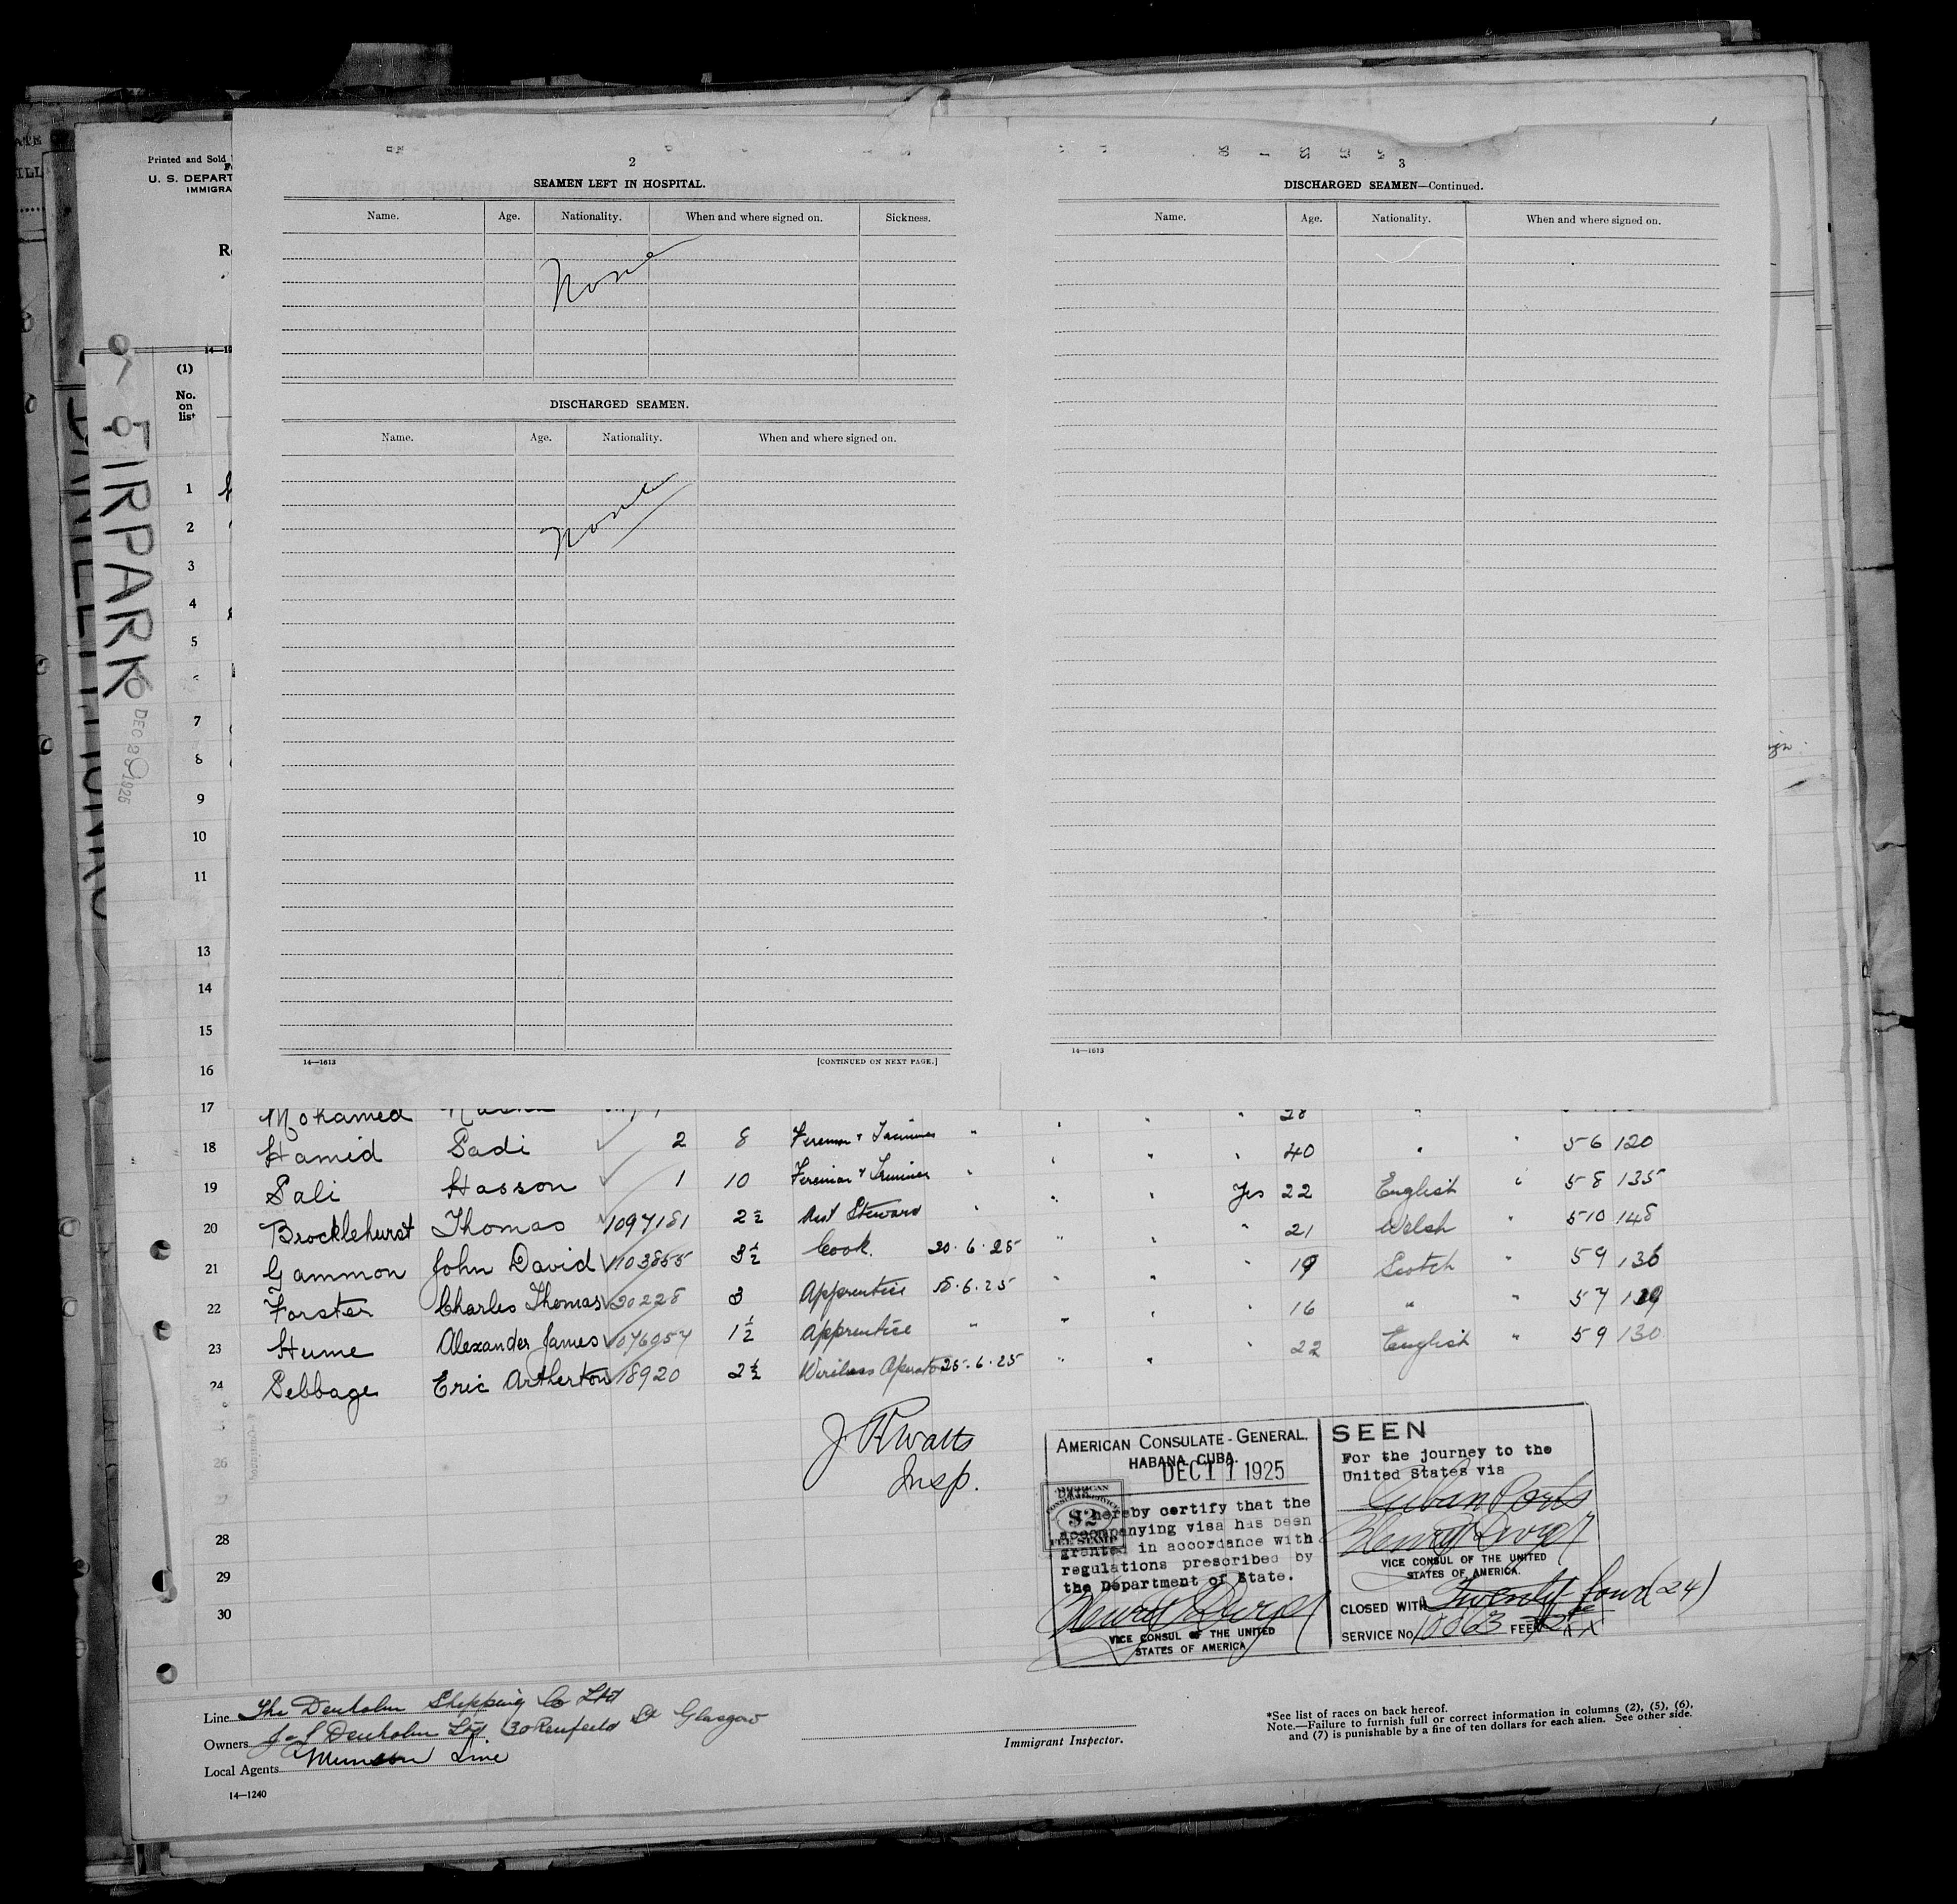 Printed and Sold
U. S. DEPART
IMMIGRA
(1)
No.
on
list
FIRPARK
DEC 29 1925
2
SEAMEN LEFT IN HOSPITAL.
Name. Age. Nationality. When and where signed on. Sickness.
None
DISCHARGED SEAMEN.
Name. Age. Nationality. When and where signed on.
None
14—1613 [CONTINUED ON NEXT PAGE.]
3
DISCHARGED SEAMEN—Continued.
Name. Age. Nationality. When and where signed on.
14—1613
1
2
3
4
5
7
8
9
10
11
13
14
15
16
17 Mohamed 28
18 Hamid Sadi 2 8 Fireman & Trimmer " " " " 40 " " 5 6 120
19 Sali Hasson 1 10 Fireman & Trimmer " " " Yes 22 English " 5 8 135
20 Brocklehurst Thomas 1097181 2½ Asst Steward " " " " 21 Welsh " 5 10 148
21 Gammon John David 1103855 3½ Cook. 20.6.25 " " " 19 Scotch " 5 9 136
22 Forster Charles Thomas 20228 3 Apprentice 6.25 " " " 16 " " 5 7
23 Hume Alexander James 1076057 1½ Apprentice " " " " 22 English " 5 9 130
24 Sebbage Eric Artherton 18920 2½ Wireless Operator 25.6.25 " "
26
28
29
30
J R Watts
Insp.
AMERICAN CONSULATE-GENERAL.
HABANA, CUBA.
DEC 11 1925
AMERICAN
CONSULAR SERVICE
$2
FEE STAMP
hereby certify that the
accompanying visa has been
granted in accordance with
regulations prescribed by
the Department of State.
VICE CONSUL OF THE UNITED
STATES OF AMERICA
SEEN
For the journey to the
United States via
Cuban Ports
VICE CONSUL OF THE UNITED
STATES OF AMERICA.
CLOSED WITH Twenty four (24)
SERVICE No. 10063 FEE
Line The Denholm Shipping Co Ltd
Owners J & J Denholm Ltd. 30 Renfield St Glasgow
Local Agents Munson Line
14—1240
Immigrant Inspector.
*See list of races on back hereof.
Note.—Failure to furnish full or correct information in columns (2), (5), (6),
and (7) is punishable by a fine of ten dollars for each alien. See other side.